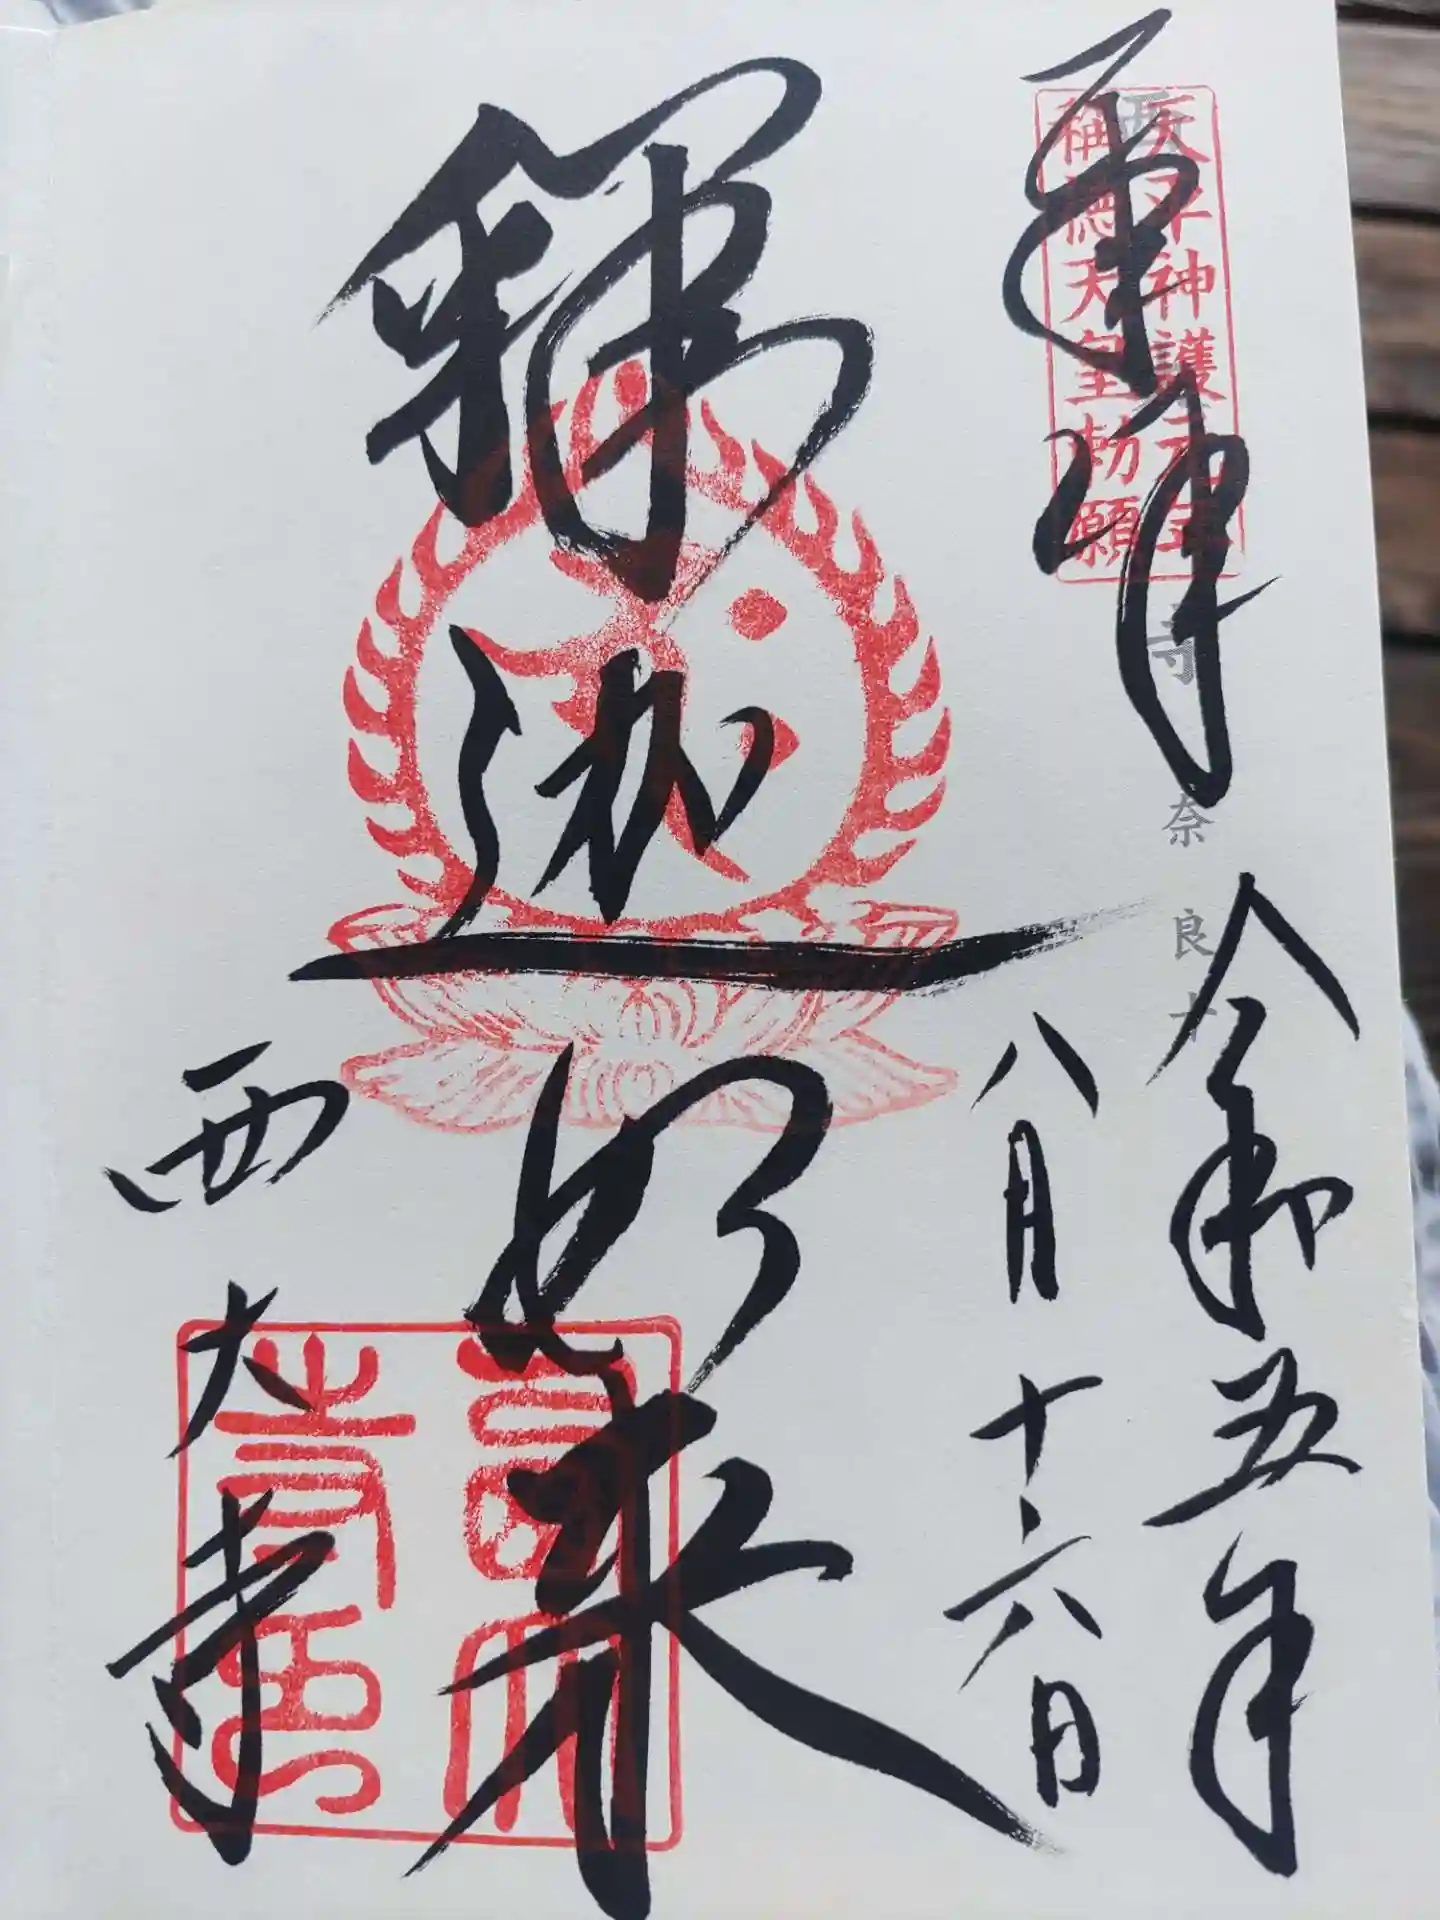 奉拝
天平神護元年
稱徳天皇勅願
西大寺
奈良十
令和五年
八月十六日
釋迦如来
西大寺
西大
寺印